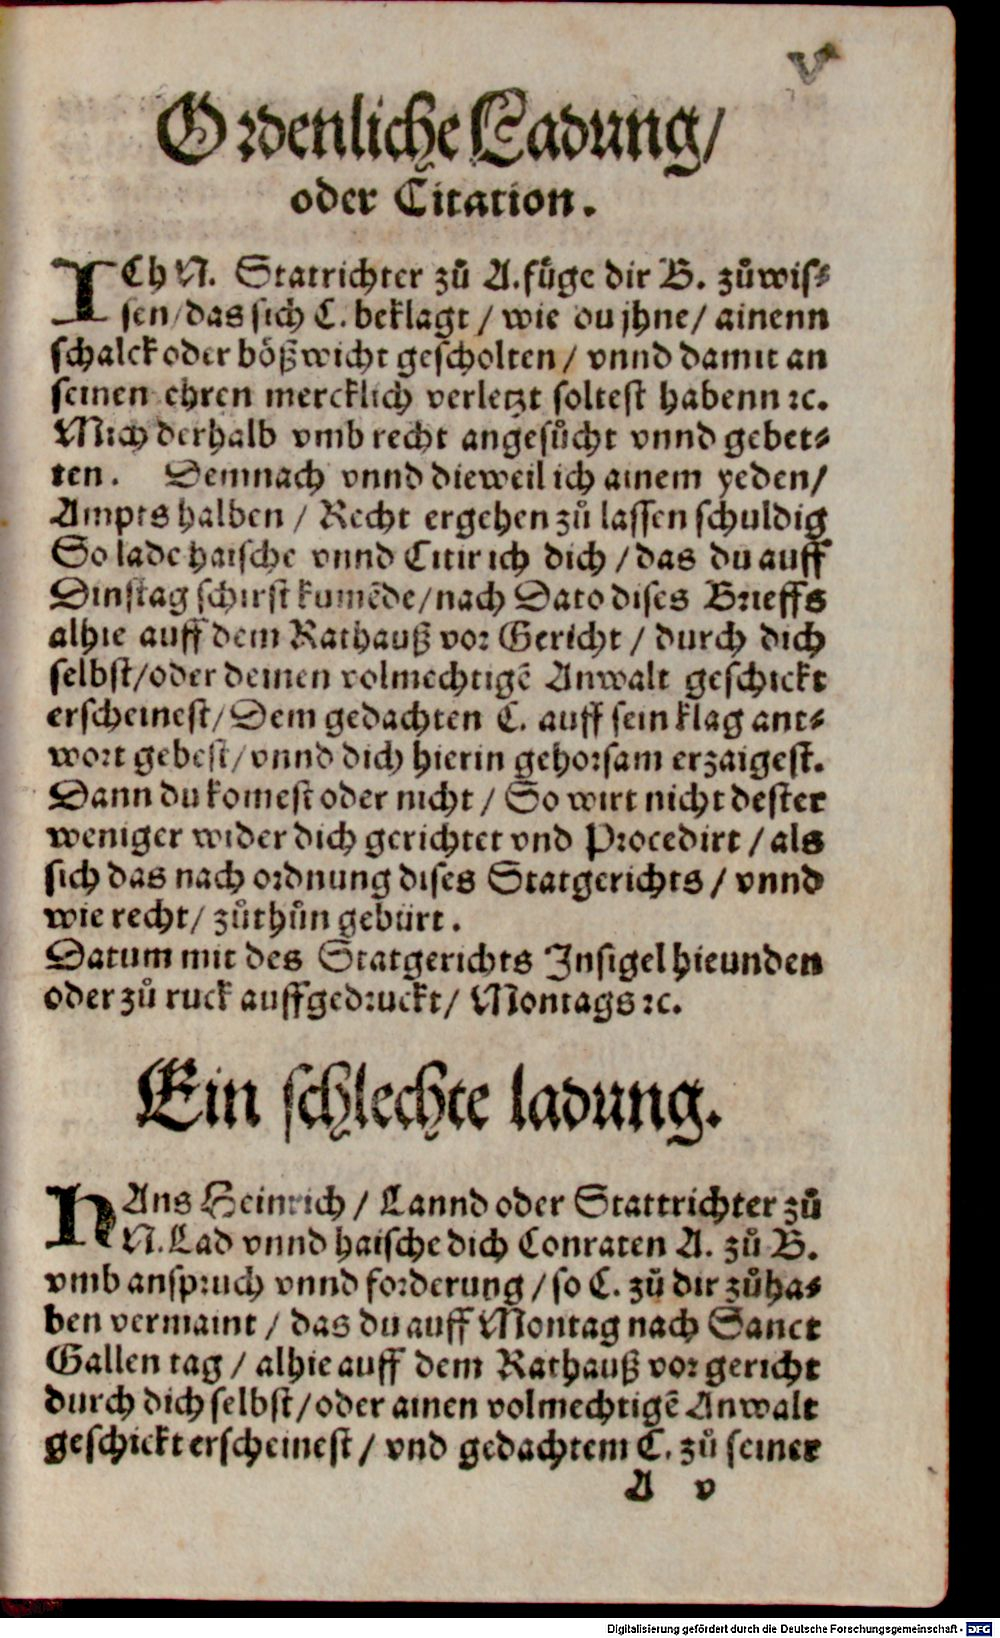 V
Ordenliche Ladung/
oder Citation.
ICh N. Statrichter zů A. fůge dir B. zůwis⸗
sen/das sich C. beklagt / wie du jhne/ ainenn
schalck oder bößwicht gescholten / vnnd damit an
seinen ehren mercklich verletzt soltest habenn ꝛc.
Mich derhalb vmb recht angesůcht vnnd gebet⸗
ten. Demnach vnnd dieweil ich ainem yeden/
Ampts halben / Recht ergehen zů lassen schuldig
So lade haische vnnd Citir ich dich / das du auff
Dinstag schirst kumẽde/nach Dato dises Brieffs
alhie auff dem Rathauß vor Gericht / durch dich
selbst/oder deinen volmechtigẽ Anwalt geschickt
erscheinest/ Dem gedachten C. auff sein klag ant⸗
wort gebest/ vnnd dich hierin gehorsam erzaigest.
Dann du komest oder nicht / So wirt nicht dester
weniger wider dich gerichtet vnd Procedirt / als
sich das nach ordnung dises Statgerichts / vnnd
wie recht/ zůthůn gebürt.
Datum mit des Statgerichts Insigel hieunden
oder zů ruck auffgedruckt/ Montags ꝛc.
Ein schlechte ladung.
HAns Heinrich / Lannd oder Stattrichter zů
N. Lad vnnd haische dich Conraten A. zů B.
vmb anspruch vnnd forderung / so C. zů dir zůha⸗
ben vermaint / das du auff Montag nach Sanct
Gallen tag / alhie auff dem Rathauß vor gericht
durch dich selbst/oder ainen volmechtigẽ Anwalt
geschickt erscheinest / vnd gedachtem C. zů seiner
A v
Digitalisierung gefördert durch die Deutsche Forschungsgemeinschaft - DFG